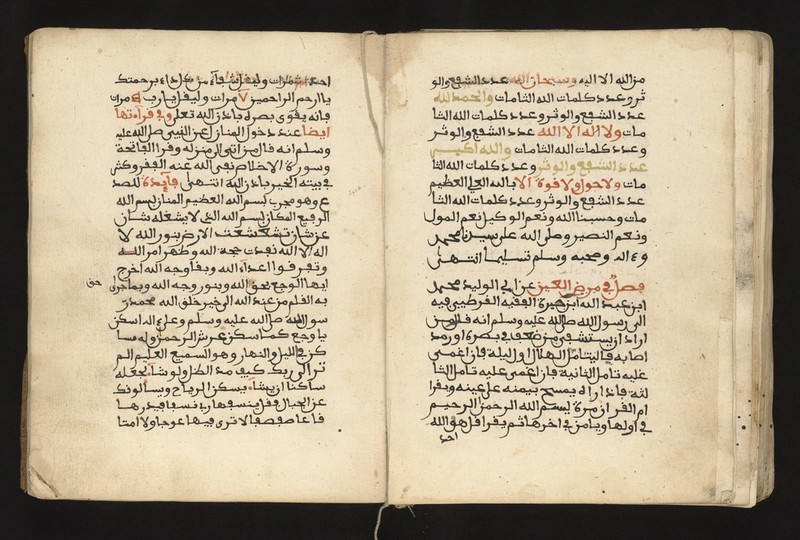 من الله الا اليه وسبحان الله عدد الشفع والو
تر وعدد كلمات الله التامات والحمد لله
عدد الشفع والوتر وعدد كلمات الله التا
مات ولا اله الا الله عدد الشفع والوتر
وعدد كلمات الله التامات والله اكبر
عدد الشفع والوتر وعدد كلمات الله التا
مات ولا حول ولا قوة الا بالله العلي العظيم
عدد الشفع والوتر وعدد كلمات الله التا
مات وحسبنا الله ونعم الوكيل نعم المول
ونعم النصير وصلى الله على سيدنا محمد
وءاله وصحبه وسلم تسليما انتهى
فصل في مرض العين عن ابي الوليد محمد
ابن عبد الله ابن خيرة الفقيه القرطبي فيه
الى رسول الله صلى الله عليه وسلم انه قال من
اراد ان يستشفي من ضعف في بصره او رمد
اصابه فاليتامل الهلال اول ليلة فان اغمى
عليه تامل الثانية فان اغمى عليه تامل الثا
لثة فاذا راه يمسح بيمنه على عينه ويقرا
ام القران مرة بسم الله الرحمن الرحيم
في اولها ويامن في اخرها ثم يقرا قل هو الله
احد
احد ثلاث مرات وليقل شفاء من كل داء برحمتك
يا ارحم الراحمين ٧ مرات وليقل يا رب ٥ مرات
فانه يقوى بصره باذن الله تعلى وفي قراءتها
ايضا عند دخول المنازل عن النبي صلى الله عليه
وسلم انه قال من اتى الى منزله وقرا الفاتحة
وسورة الاخلاص نفى الله عنه الفقر وكثر
في بيته الخير باذن الله انتهى فايدة للصد
ع وهو مجرب بسم الله العظيم المنان بسم الله
الرفيع المكان بسم الله الذي لا يشغله شان
عن شان تشعشعت الارض بنور الله لا
اله الا الله نفدت حجة الله وظهر امر الله
وتفرقوا اعداء الله وبقا وجه الله اخرج
ايها الوجع بحق الله وبنور وجه الله وبما جرى
حق
به القلم من عند الله الى خير خلق الله محمد ر
سول الله صلى الله عليه وسلم وعلى ءاله اسكن
يا وجع كما سكن عرش الرحمن وله ما س
كن في الليل والنهار وهو السميع العليم الم
تر الى ربك كيف مد الظل ولو شاء لجعله
ساكنا ان يشا يسكن الرياح ويسالونك
عن الجبال فقل ينسفها ربي نسفا فيذرها
قاعا صفصفا لا ترى فيها عوجا ولا امتا